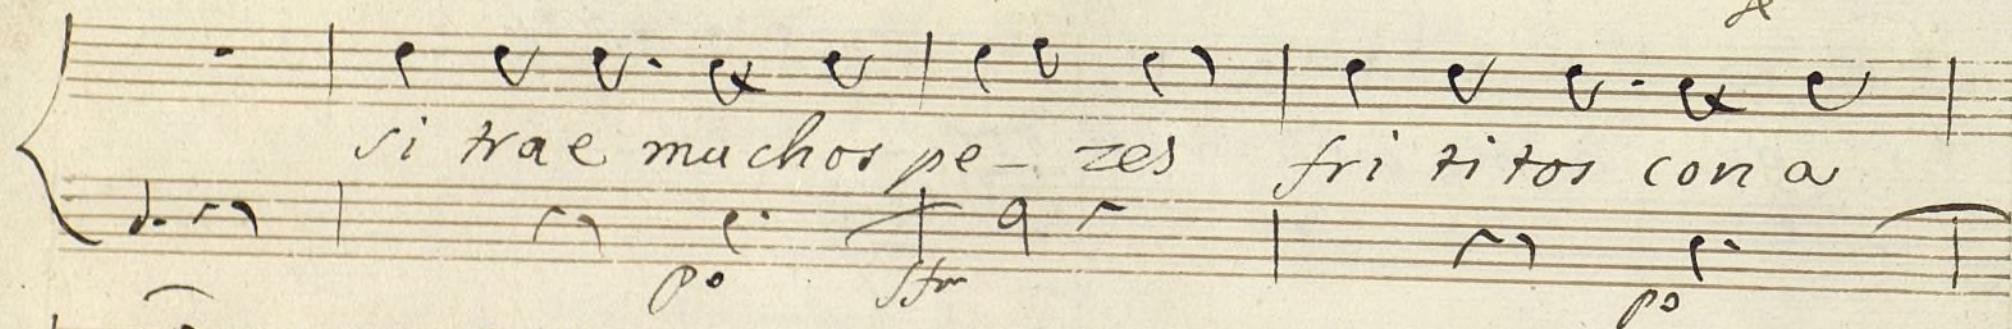 si trae muchos pe - zes fri ti tos con a
po sfor po